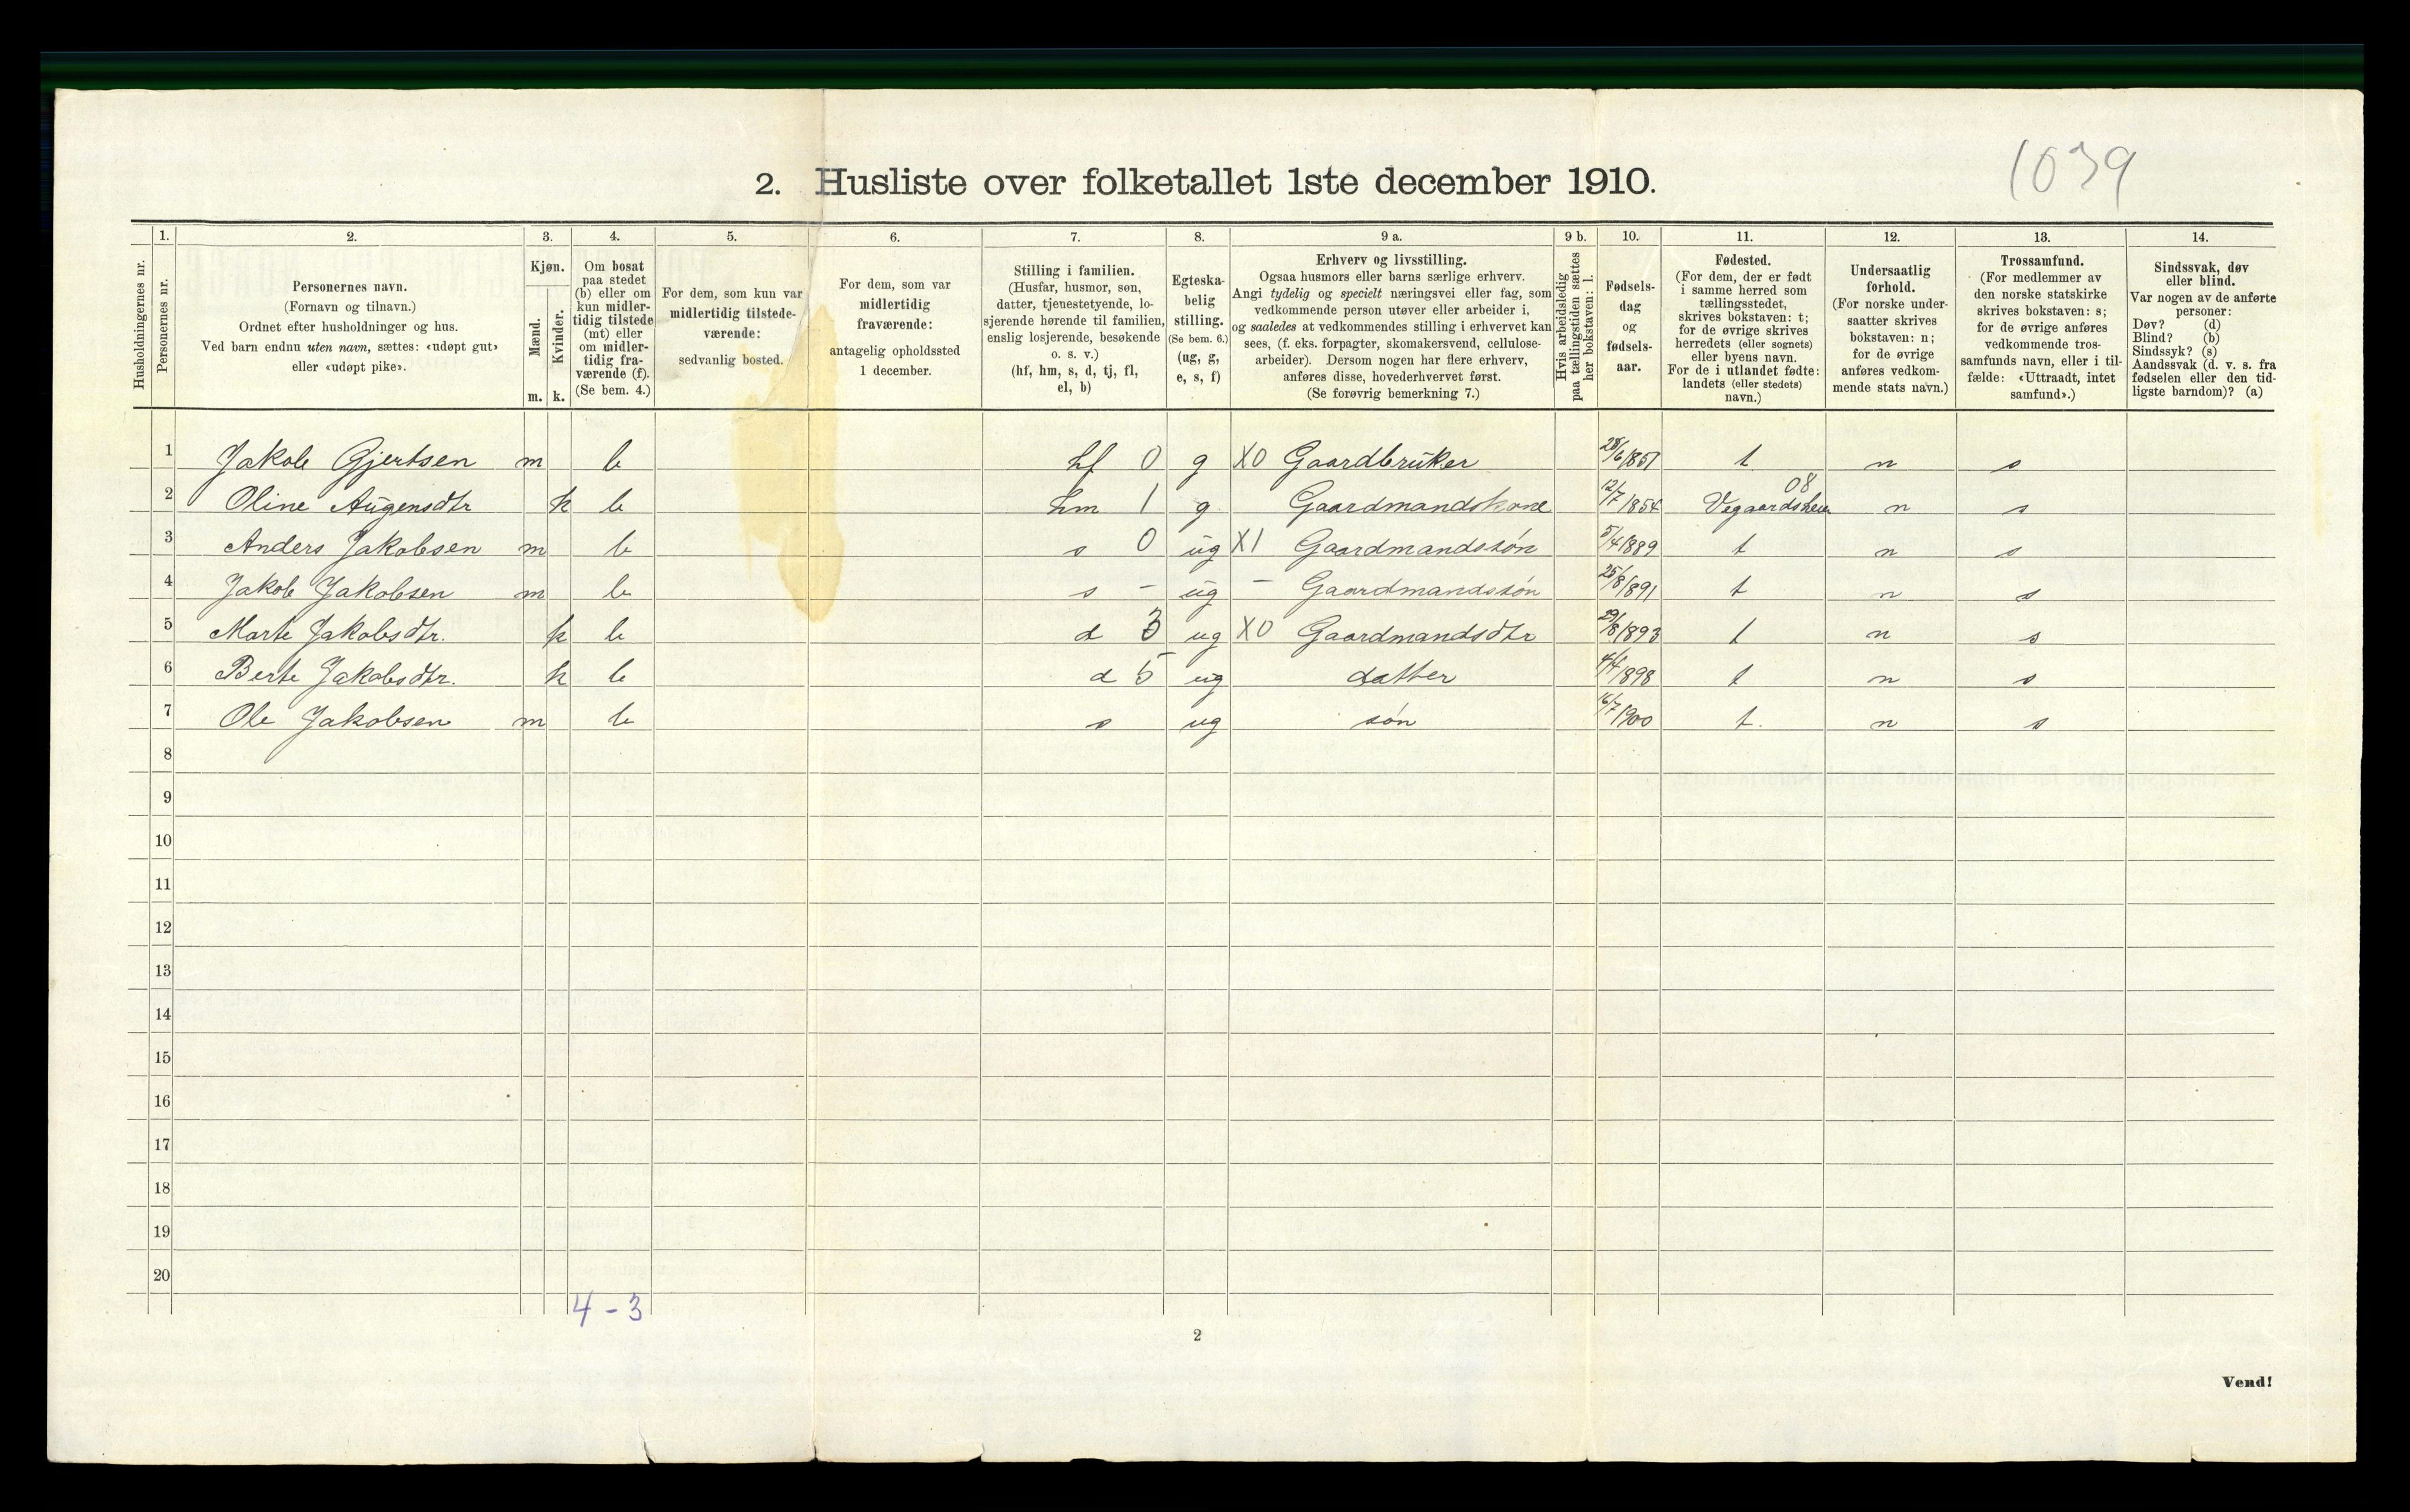 1039
2. Husliste over folketallet 1ste december 1910.
1. 2. 3. 4. 5. 6. 7. 8. 9 a. 9 b. 10. 11. 12. 13. 14.
Husholdningernes nr.
Personernes nr.
Personernes navn.
(Fornavn og tilnavn.)
Ordnet efter husholdninger og hus.
Ved barn endnu uten navn, sættes: «udøpt gut»
eller «udøpt pike».
Kjøn.
Mænd.
Kvinder.
m. k.
Om bosat
paa stedet
(b) eller om
kun midler-
tidig tilstede
(mt) eller
om midler-
tidig fra-
værende (f).
(Se bem. 4.)
For dem, som kun var
midlertidig tilstede-
værende:
sedvanlig bosted.
For dem, som var
midlertidig
fraværende:
antagelig opholdssted
1 december.
Stilling i familien.
(Husfar, husmor, søn,
datter, tjenestetyende, lo-
sjerende hørende til familien,
enslig losjerende, besøkende
o. s. v.)
(hf, hm, s, d, tj, fl,
el, b)
Egteska-
belig
stilling.
(Se bem. 6.)
(ug, g,
e, s, f)
Erhverv og livsstilling.
Ogsaa husmors eller barns særlige erhverv.
Angi tydelig og specielt næringsvei eller fag, som
vedkommende person utøver eller arbeider i,
og saaledes at vedkommendes stilling i erhvervet kan
sees, (f. eks. forpagter, skomakersvend, cellulose-
arbeider). Dersom nogen har flere erhverv,
anføres disse, hovederhvervet først.
(Se forøvrig bemerkning 7.)
Hvis arbeidsledig
paa tællingstiden sættes
her bokstaven: l.
Fødsels-
dag
og
fødsels-
aar.
Fødested.
(For dem, der er født
i samme herred som
tællingsstedet,
skrives bokstaven: t;
for de øvrige skrives
herredets (eller sognets)
eller byens navn.
For de i utlandet fødte:
landets (eller stedets)
navn.)
Undersaatlig
forhold.
(For norske under-
saatter skrives
bokstaven: n;
for de øvrige
anføres vedkom-
mende stats navn.)
Trossamfund.
(For medlemmer av
den norske statskirke
skrives bokstaven: s;
for de øvrige anføres
vedkommende tros-
samfunds navn, eller i til-
fælde: «Uttraadt, intet
samfund».)
Sindssvak, døv
eller blind.
Var nogen av de anførte
personer:
Døv? (d)
Blind? (b)
Sindssyk? (s)
Aandssvak (d. v. s. fra
fødselen eller den tid-
ligste barndom)? (a)
1 Jakob Gjertsen m b hf 0 g X0 Gaardbruker 28/6 1857 t n s
08
2 Oline Augensdtr k b hm 1 g Gaardmandskone 12/7 1854 Vegaardsheien n s
3 Anders Jakobsen m b s 0 ug X1 Gaardmandssøn 5/4 1889 t n s
4 Jakob Jakobsen m b s - ug - Gaardmandssøn 25/8 1891 t n s
5 Marte Jakobsdtr. k b d 3 ug X0 Gaardmandsdtr 29/8 1893 t n s
6 Berte Jakobsdtr. k b d 5 ug datter 4/4 1898 t n s
7 Ole Jakobsen m b s ug søn 16/7 1900 t. n s
8
9
10
11
12
13
14
15
16
17
18
19
20
4 - 3
2
Vend!